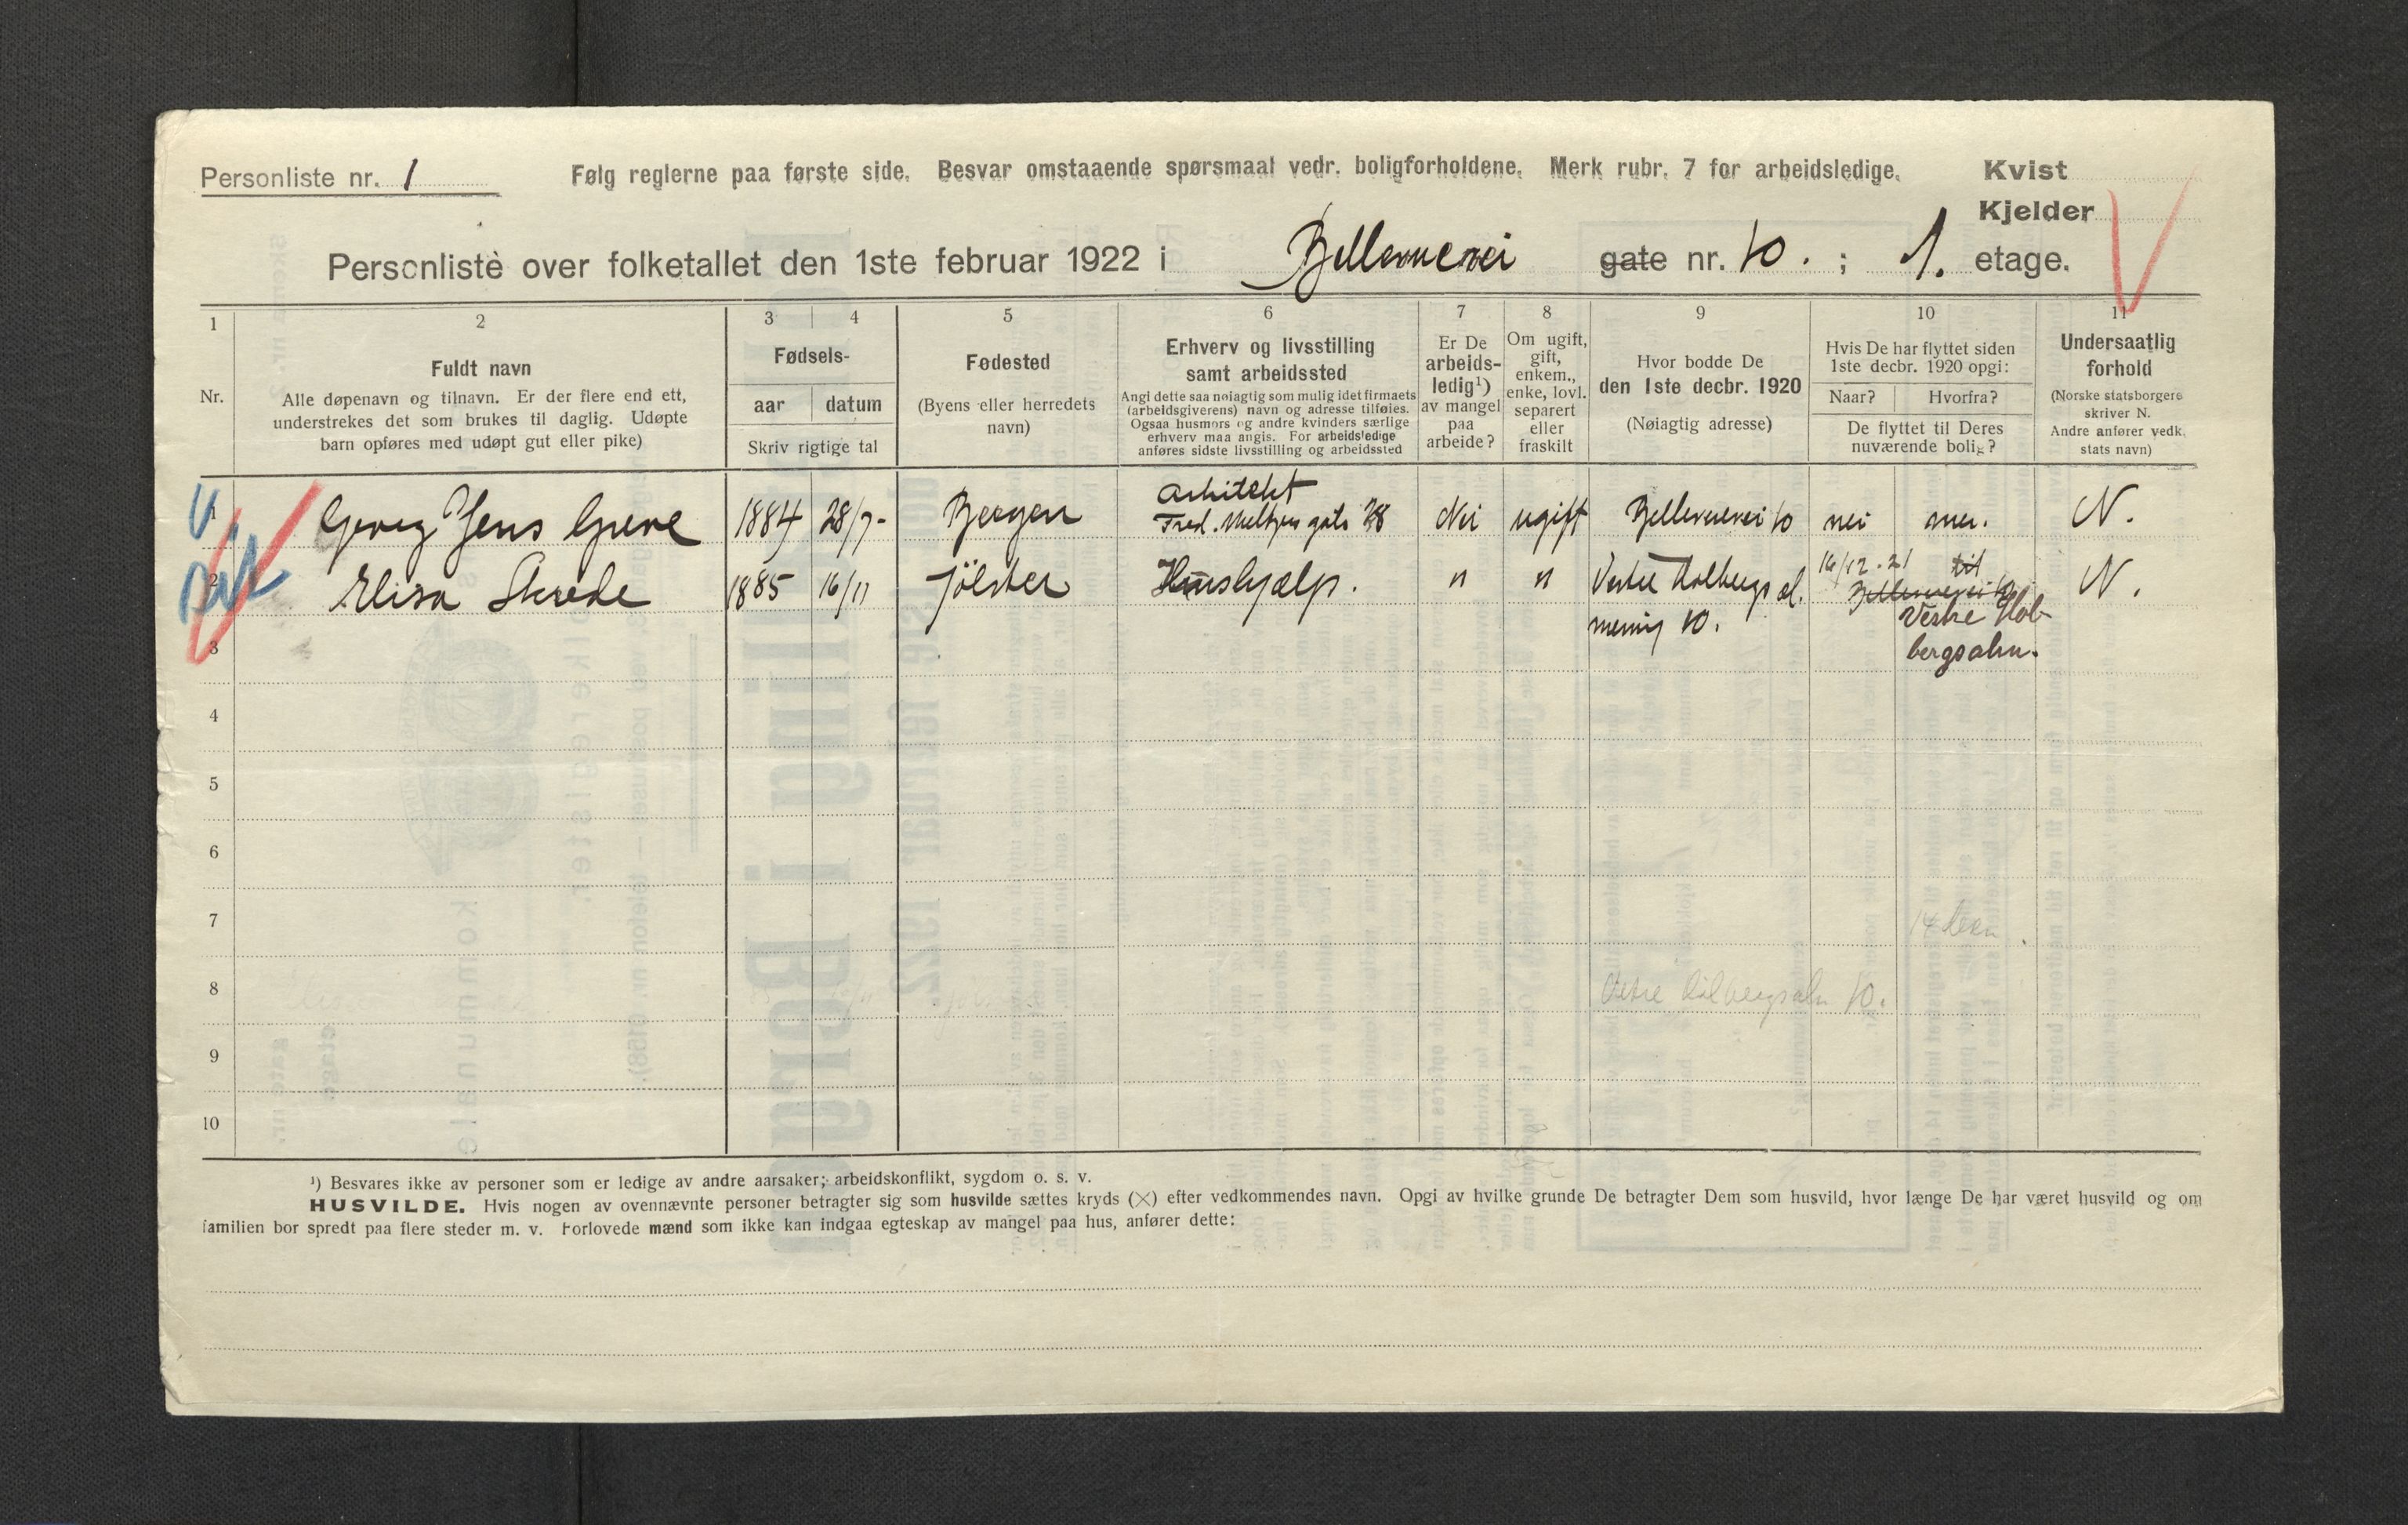 Personliste nr. 1
Følg reglerne paa første side. Besvar omstaaende spørsmaal vedr. boligforholdene. Merk rubr. 7 for arbeidsledige.
Kvist
Kjelder
Personliste over folketallet den 1ste februar 1922 i Bellevuevei gate nr. 10. ; 1. etage.
1 2 3 4 5 6 7 8 9 10 11
Nr.
Fuldt navn
Alle døpenavn og tilnavn. Er der flere end ett,
understrekes det som brukes til daglig. Udøpte
barn opføres med udøpt gut eller pike)
Fødsels-
aar datum
Skriv rigtige tal
Fødested
(Byens eller herredets
navn)
Erhverv og livsstilling
samt arbeidssted
Angi dette saa nøiagtig som mulig idet firmaets
(arbeidsgiverens) navn og adresse tilføies.
Ogsaa husmors og andre kvinders særlige
erhverv maa angis. For arbeidsledige
anføres sidste livsstilling og arbeidssted
Er De
arbeids-
ledig¹)
av mangel
paa
arbeide?
Om ugift,
gift,
enkem.,
enke, lovl.
separert
eller
fraskilt
Hvor bodde De
den 1ste decbr. 1920
(Nøiagtig adresse)
Hvis De har flyttet siden
1ste decbr. 1920 opgi:
Naar? Hvorfra?
De flyttet til Deres
nuværende bolig?
Undersaatlig
forhold
(Norske statsborgere
skriver N.
Andre anfører vedk.
stats navn)
1 Georg Jens Greve 1884 28/7- Bergen Arkitekt
Fred. Meltzers gate Nei ugift Bellevuevei 10 nei N.
2 Elisa Skrede 1885 16/11 Jölster Hushjælp. " " Vestre Holbergs al.
mening 10. 16/12.21 til
Bellevuevei 10
Vestre Hol-
bergsalm. N.
3
4
5
6
7
8 Vestre Holbergsalm 10.
9
10
¹) Besvares ikke av personer som er ledige av andre aarsaker; arbeidskonflikt, sygdom o. s. v.
HUSVILDE. Hvis nogen av ovennævnte personer betragter sig som husvilde sættes kryds (×) efter vedkommendes navn. Opgi av hvilke grunde De betragter Dem som husvild, hvor længe De har været husvild og om
familien bor spredt paa flere steder m. v. Forlovede mænd som ikke kan indgaa egteskap av mangel paa hus, anfører dette: